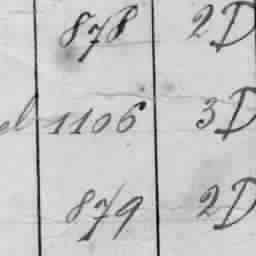 878 2D
1106 3D
879 2D